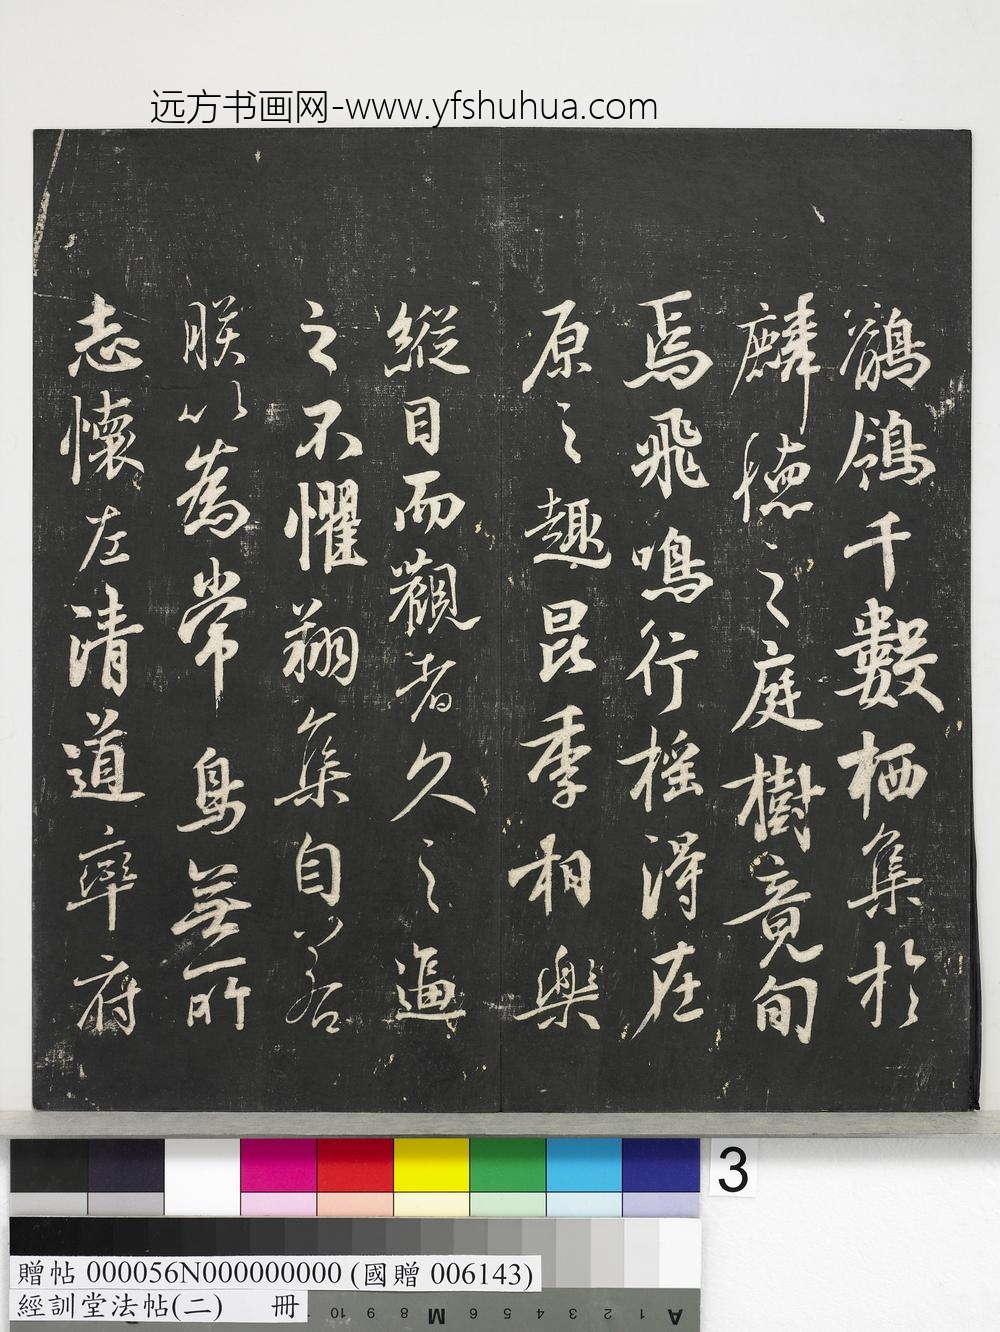 远方书画网-www.yfshuhua.com
鶺鴒千數栖集於
麟德之庭樹竟旬
焉飛鳴行摇得在
原之趣昆季相樂
縱目而觀者久之逼
之不懼翔集自若
朕以為常鳥無所
志懷左清道率府
3
贈帖 000056N000000000 (國贈 006143)
經訓堂法帖(二) 冊
10 9 8 M 6 5 4 3 2 1 A